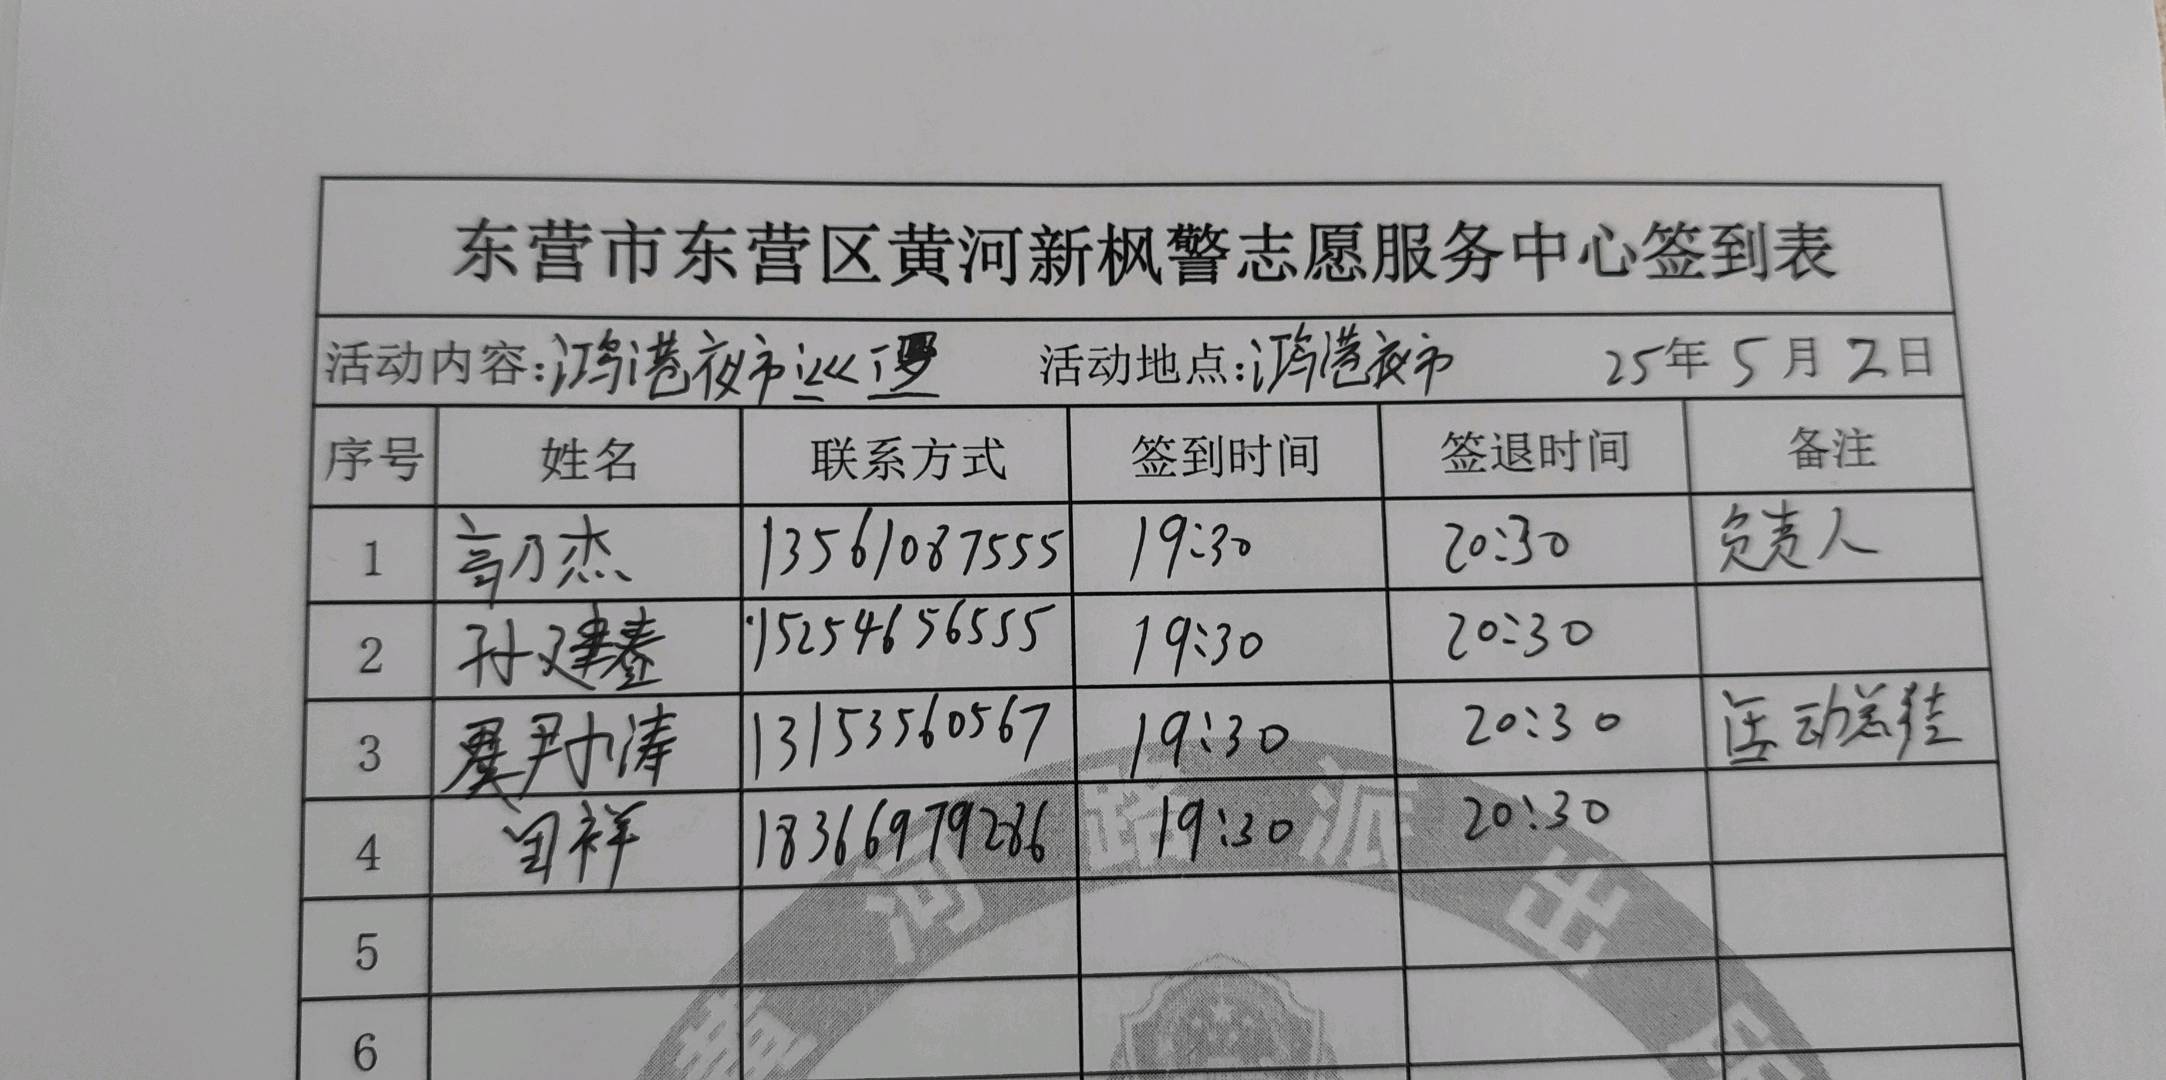 东营市东营区黄河新枫警志愿服务中心签到表
活动内容:鸿港夜市巡逻 活动地点:鸿港夜市 25年5月2日
序号 姓名 联系方式 签到时间 签退时间 备注
1 高乃杰 13561087555 19:30 20:30 负责人
2 孙建鑫 15254656555 19:30 20:30
3 涛 13153560567 19:30 20:30 活动总结
4 祥 18366979286 19:30 20:30
5
6
黄河路派出所